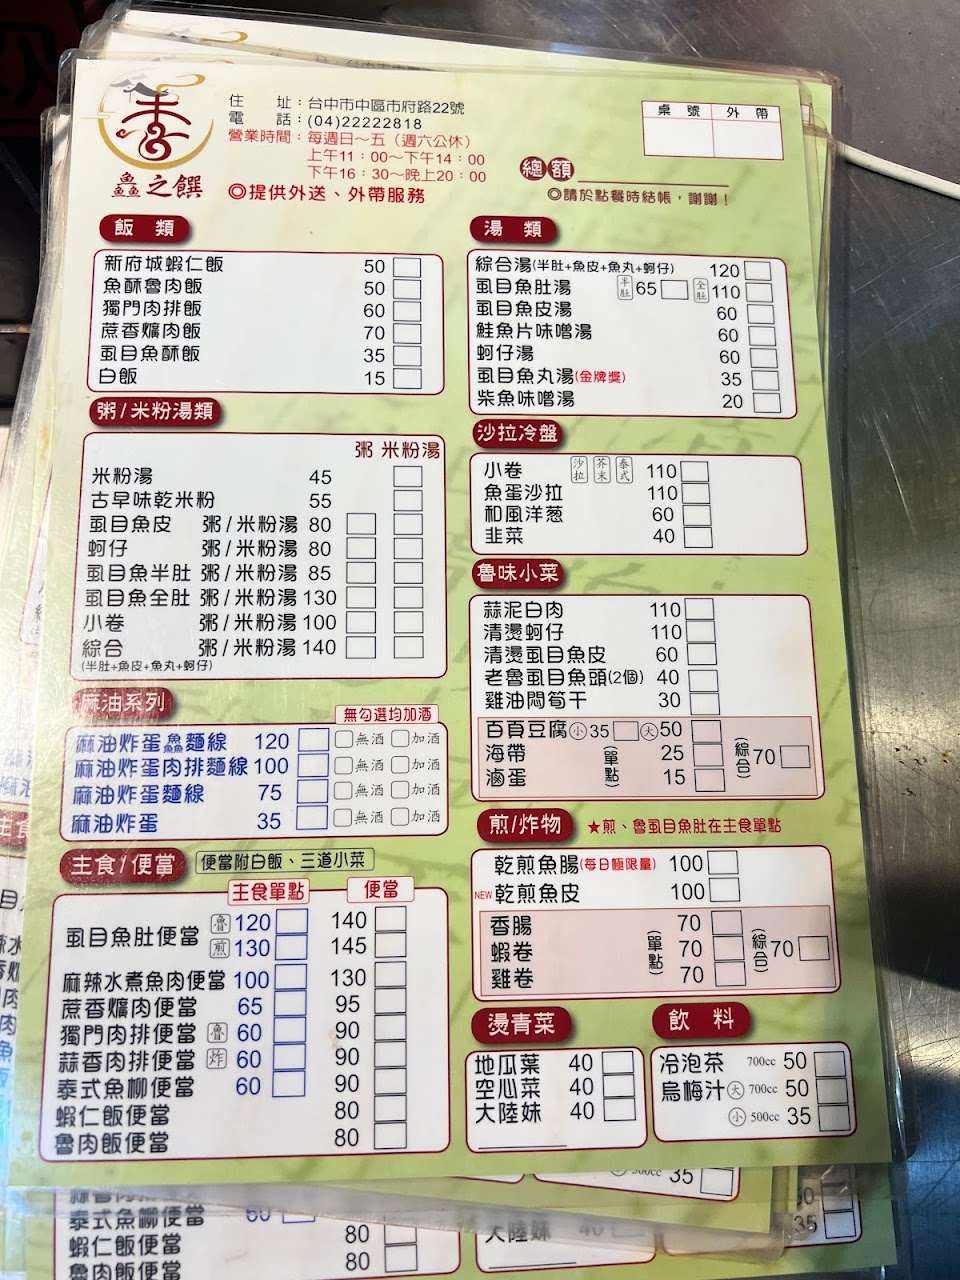 香
鱻之饌
住 址：台中市中區市府路22號
電 話：(04)22222818
營業時間：每週日～五（週六公休）
上午11：00～下午14：00
下午16：30～晚上20：00
◎提供外送、外帶服務
桌 號 外 帶
總額
◎請於點餐時結帳，謝謝！
飯 類
新府城蝦仁飯 50
魚酥魯肉飯 50
獨門肉排飯 60
蔗香爌肉飯 70
虱目魚酥飯 35
白飯 15
粥/米粉湯類
粥 米粉湯
米粉湯 45
古早味乾米粉 55
虱目魚皮 粥/米粉湯 80
蚵仔 粥/米粉湯 80
虱目魚半肚 粥/米粉湯 85
虱目魚全肚 粥/米粉湯 130
小卷 粥/米粉湯 100
綜合 粥/米粉湯 140
(半肚+魚皮+魚丸+蚵仔)
麻油系列
無勾選均加酒
麻油炸蛋鱻麵線 120 無酒 加酒
麻油炸蛋肉排麵線 100 無酒 加酒
麻油炸蛋麵線 75 無酒 加酒
麻油炸蛋 35 無酒 加酒
主食/便當 便當附白飯、三道小菜
主食單點 便當
虱目魚肚便當 魯 120 140
煎 130 145
麻辣水煮魚肉便當 100 130
蔗香爌肉便當 65 95
獨門肉排便當 魯 60 90
蒜香肉排便當 炸 60 90
泰式魚柳便當 60 90
蝦仁飯便當 80
魯肉飯便當 80
湯 類
綜合湯(半肚+魚皮+魚丸+蚵仔) 120
虱目魚肚湯 半肚 65 全肚 110
虱目魚皮湯 60
鮭魚片味噌湯 60
蚵仔湯 60
虱目魚丸湯(金牌獎) 35
柴魚味噌湯 20
沙拉冷盤
小卷 沙拉 芥末 泰式 110
魚蛋沙拉 110
和風洋葱 60
韭菜 40
魯味小菜
蒜泥白肉 110
清燙蚵仔 110
清燙虱目魚皮 60
老魯虱目魚頭(2個) 40
雞油悶筍干 30
百頁豆腐 小 35 大 50
海帶 25
滷蛋 15
(單點)
(綜合) 70
煎/炸物 ★煎、魯虱目魚肚在主食單點
乾煎魚腸(每日極限量) 100
NEW乾煎魚皮 100
香腸 70
蝦卷 70
雞卷 70
(單點)
(綜合) 70
燙青菜
地瓜葉 40
空心菜 40
大陸妹 40
飲 料
冷泡茶 700cc 50
烏梅汁 大 700cc 50
小 500cc 35
泰式魚柳便當 60
蝦仁飯便當 80
魯肉飯便當 80
大陸妹 40
35
35